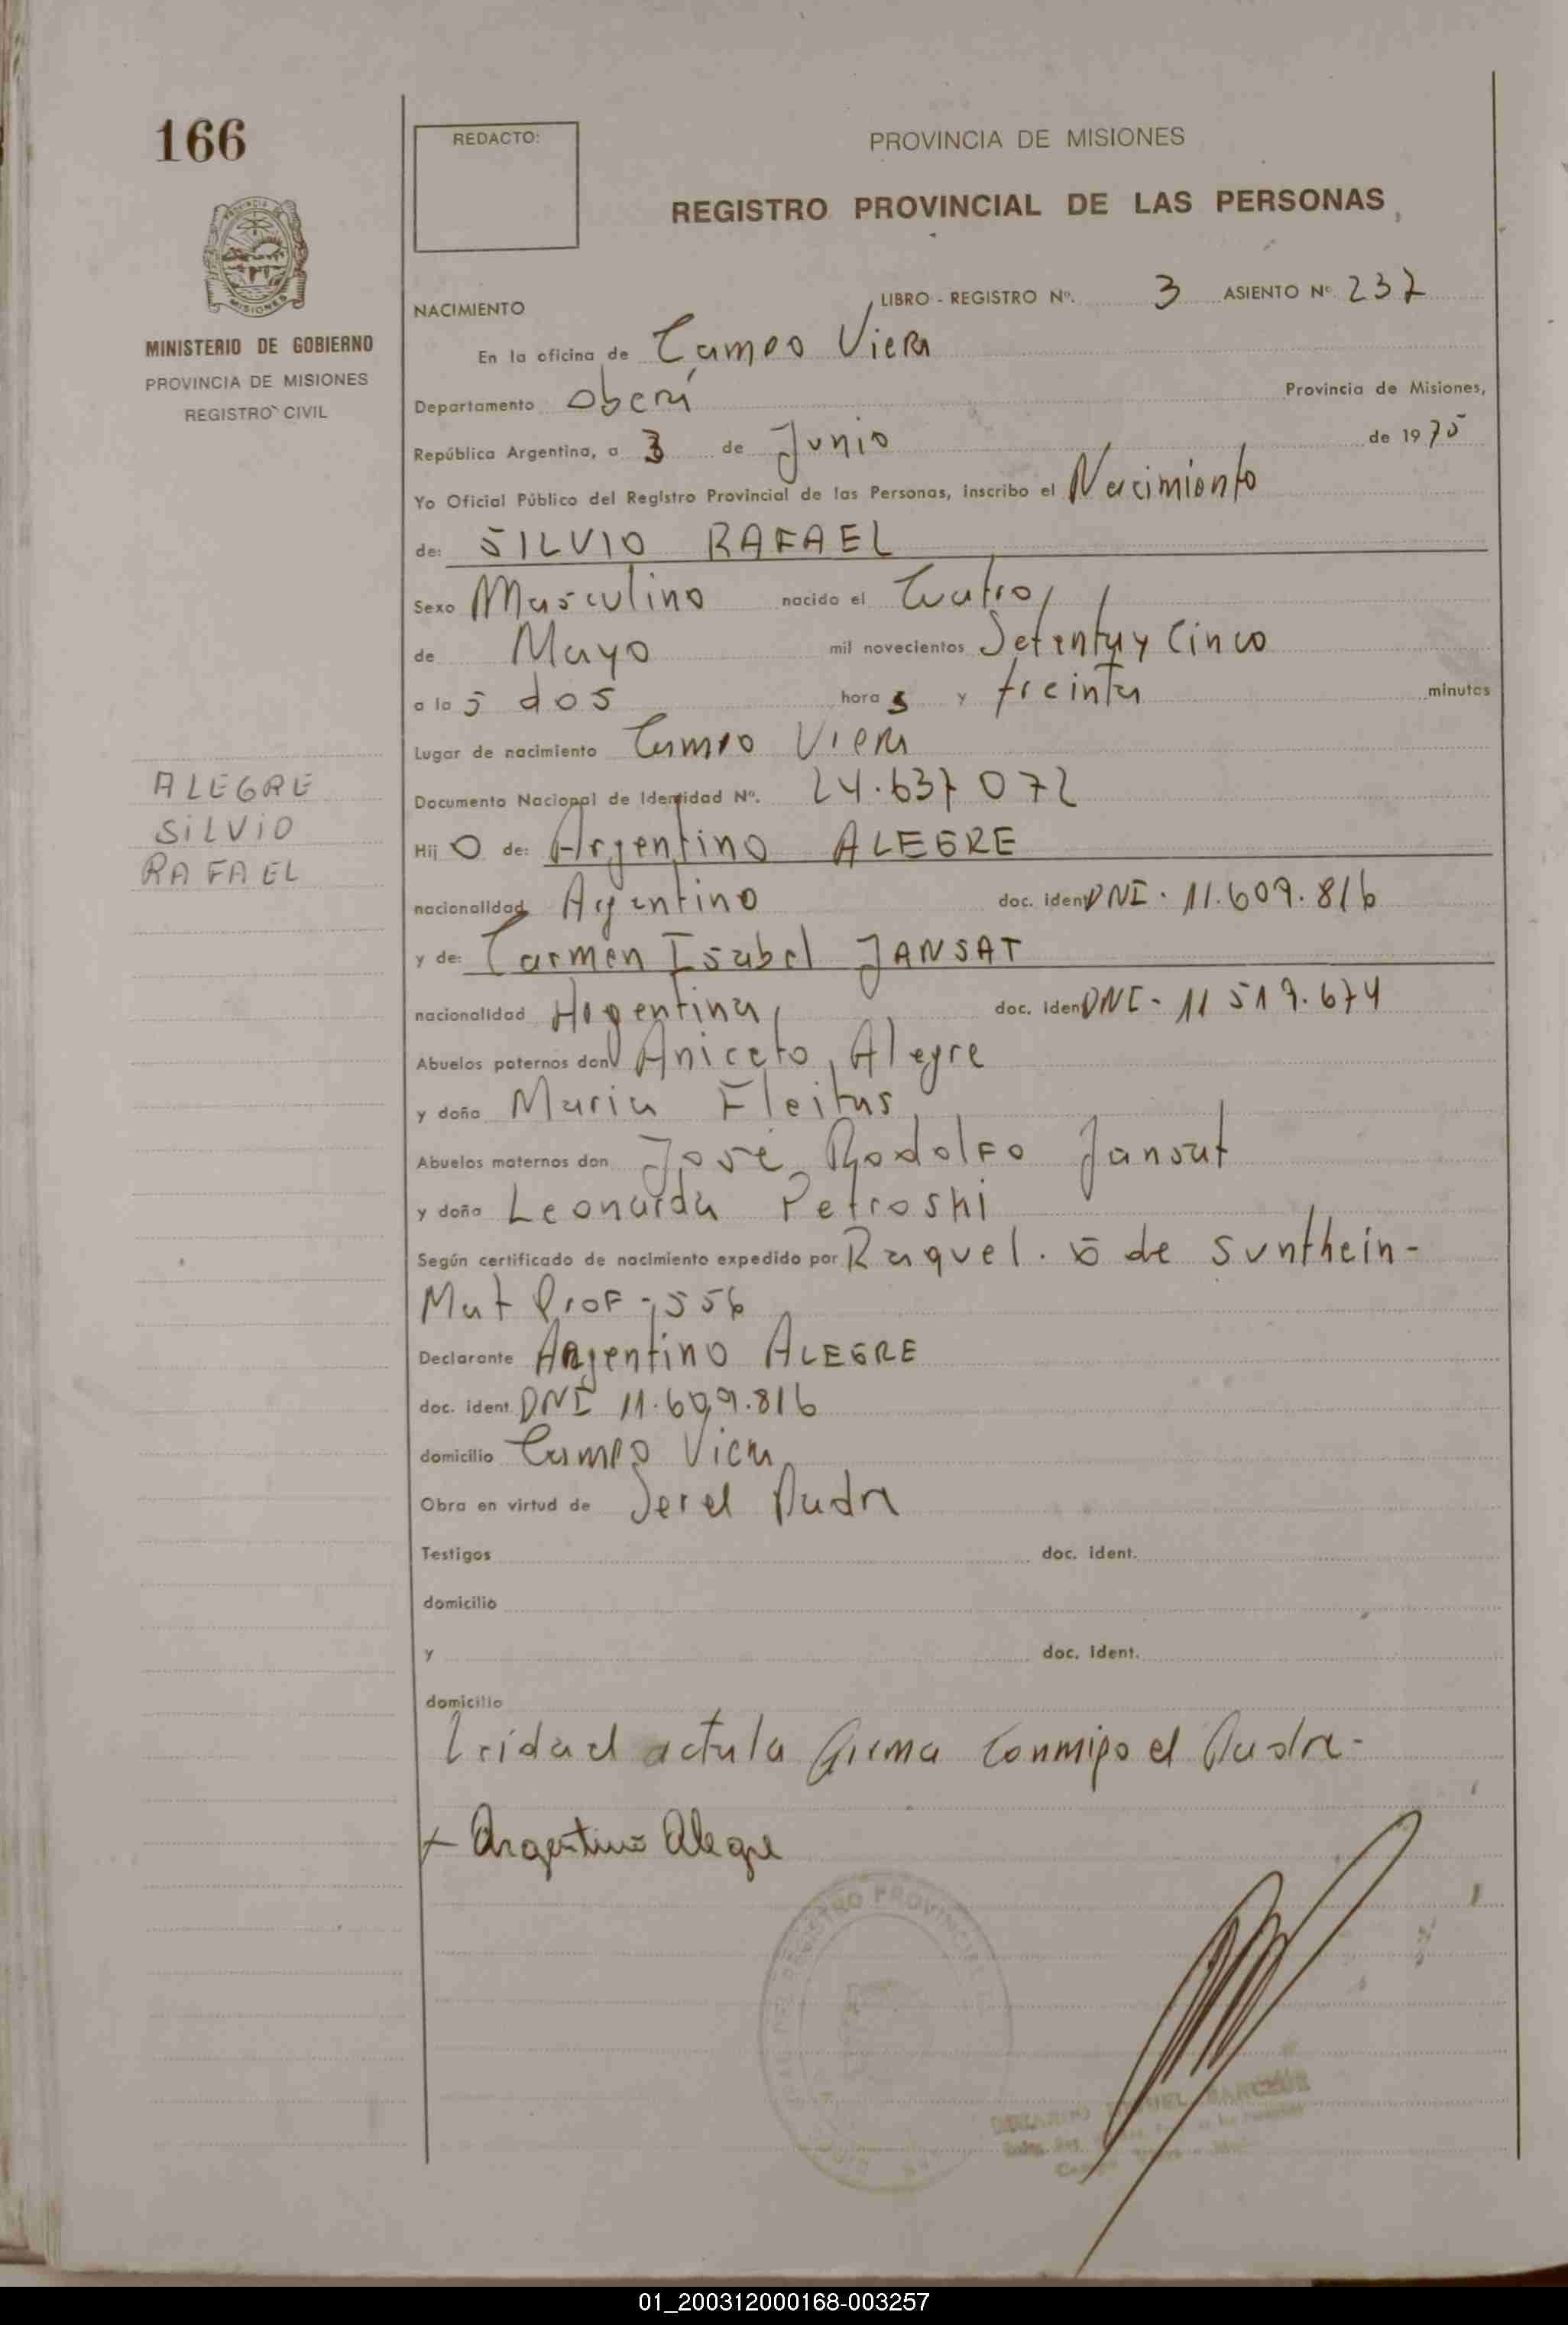 166
REDACTO:
PROVINCIA DE MISIONES
REGISTRO PROVINCIAL DE LAS PERSONAS
MINISTERIO DE GOBIERNO
PROVINCIA DE MISIONES
REGISTRO CIVIL
NACIMIENTO LIBRO - REGISTRO Nº. 3 ASIENTO Nº 237
En la oficina de Campo Viera
Departamento Oberá Provincia de Misiones,
República Argentina, a 3 de Junio de 1975
Yo Oficial Público del Registro Provincial de las Personas, inscribo el Nacimiento
de: SILVIO RAFAEL
Sexo Masculino nacido el Cuatro
de Mayo mil novecientos Setenta y Cinco
a la s dos hora s y treinta minutos
Lugar de nacimiento Campo Viera
ALEGRE
SILVIO
RAFAEL
Documento Nacional de Identidad Nº. 24.637 072
Hij o de: Argentino ALEGRE
nacionalidad Argentino doc. ident DNI. 11.609.816
y de: Carmen Isabel JANSAT
nacionalidad Argentina doc. ident DNI - 11 519.674
Abuelos paternos don Aniceto Alegre
y doña Maria Fleitas
Abuelos maternos don José Rodolfo Jansat
y doña Leonarda Petroski
Según certificado de nacimiento expedido por Raquel. de Sunthein -
Mat Prof - 556
Declarante Argentino ALEGRE
doc. ident. DNI 11.609.816
domicilio Campo Viera
Obra en virtud de Ser el Padre
Testigos doc. ident.
domicilio
y doc. ident.
domicilio
Leida el acta la firma conmigo el Padre -
Argentino Alegre
REGISTRO PROVINCIAL
01_200312000168-003257